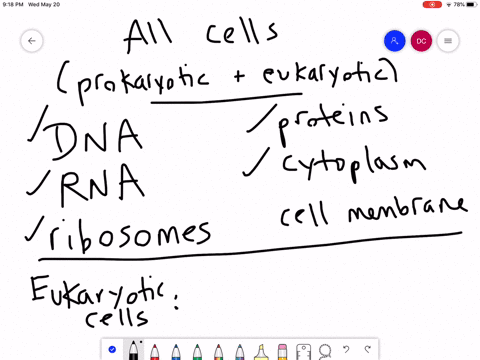 9:18 PM Wed May 20
78%
DC
All cells
(prokaryotic + eukaryotic)
✓DNA
✓RNA
✓ribosomes
✓proteins
✓cytoplasm
cell membrane
Eukaryotic
cells :